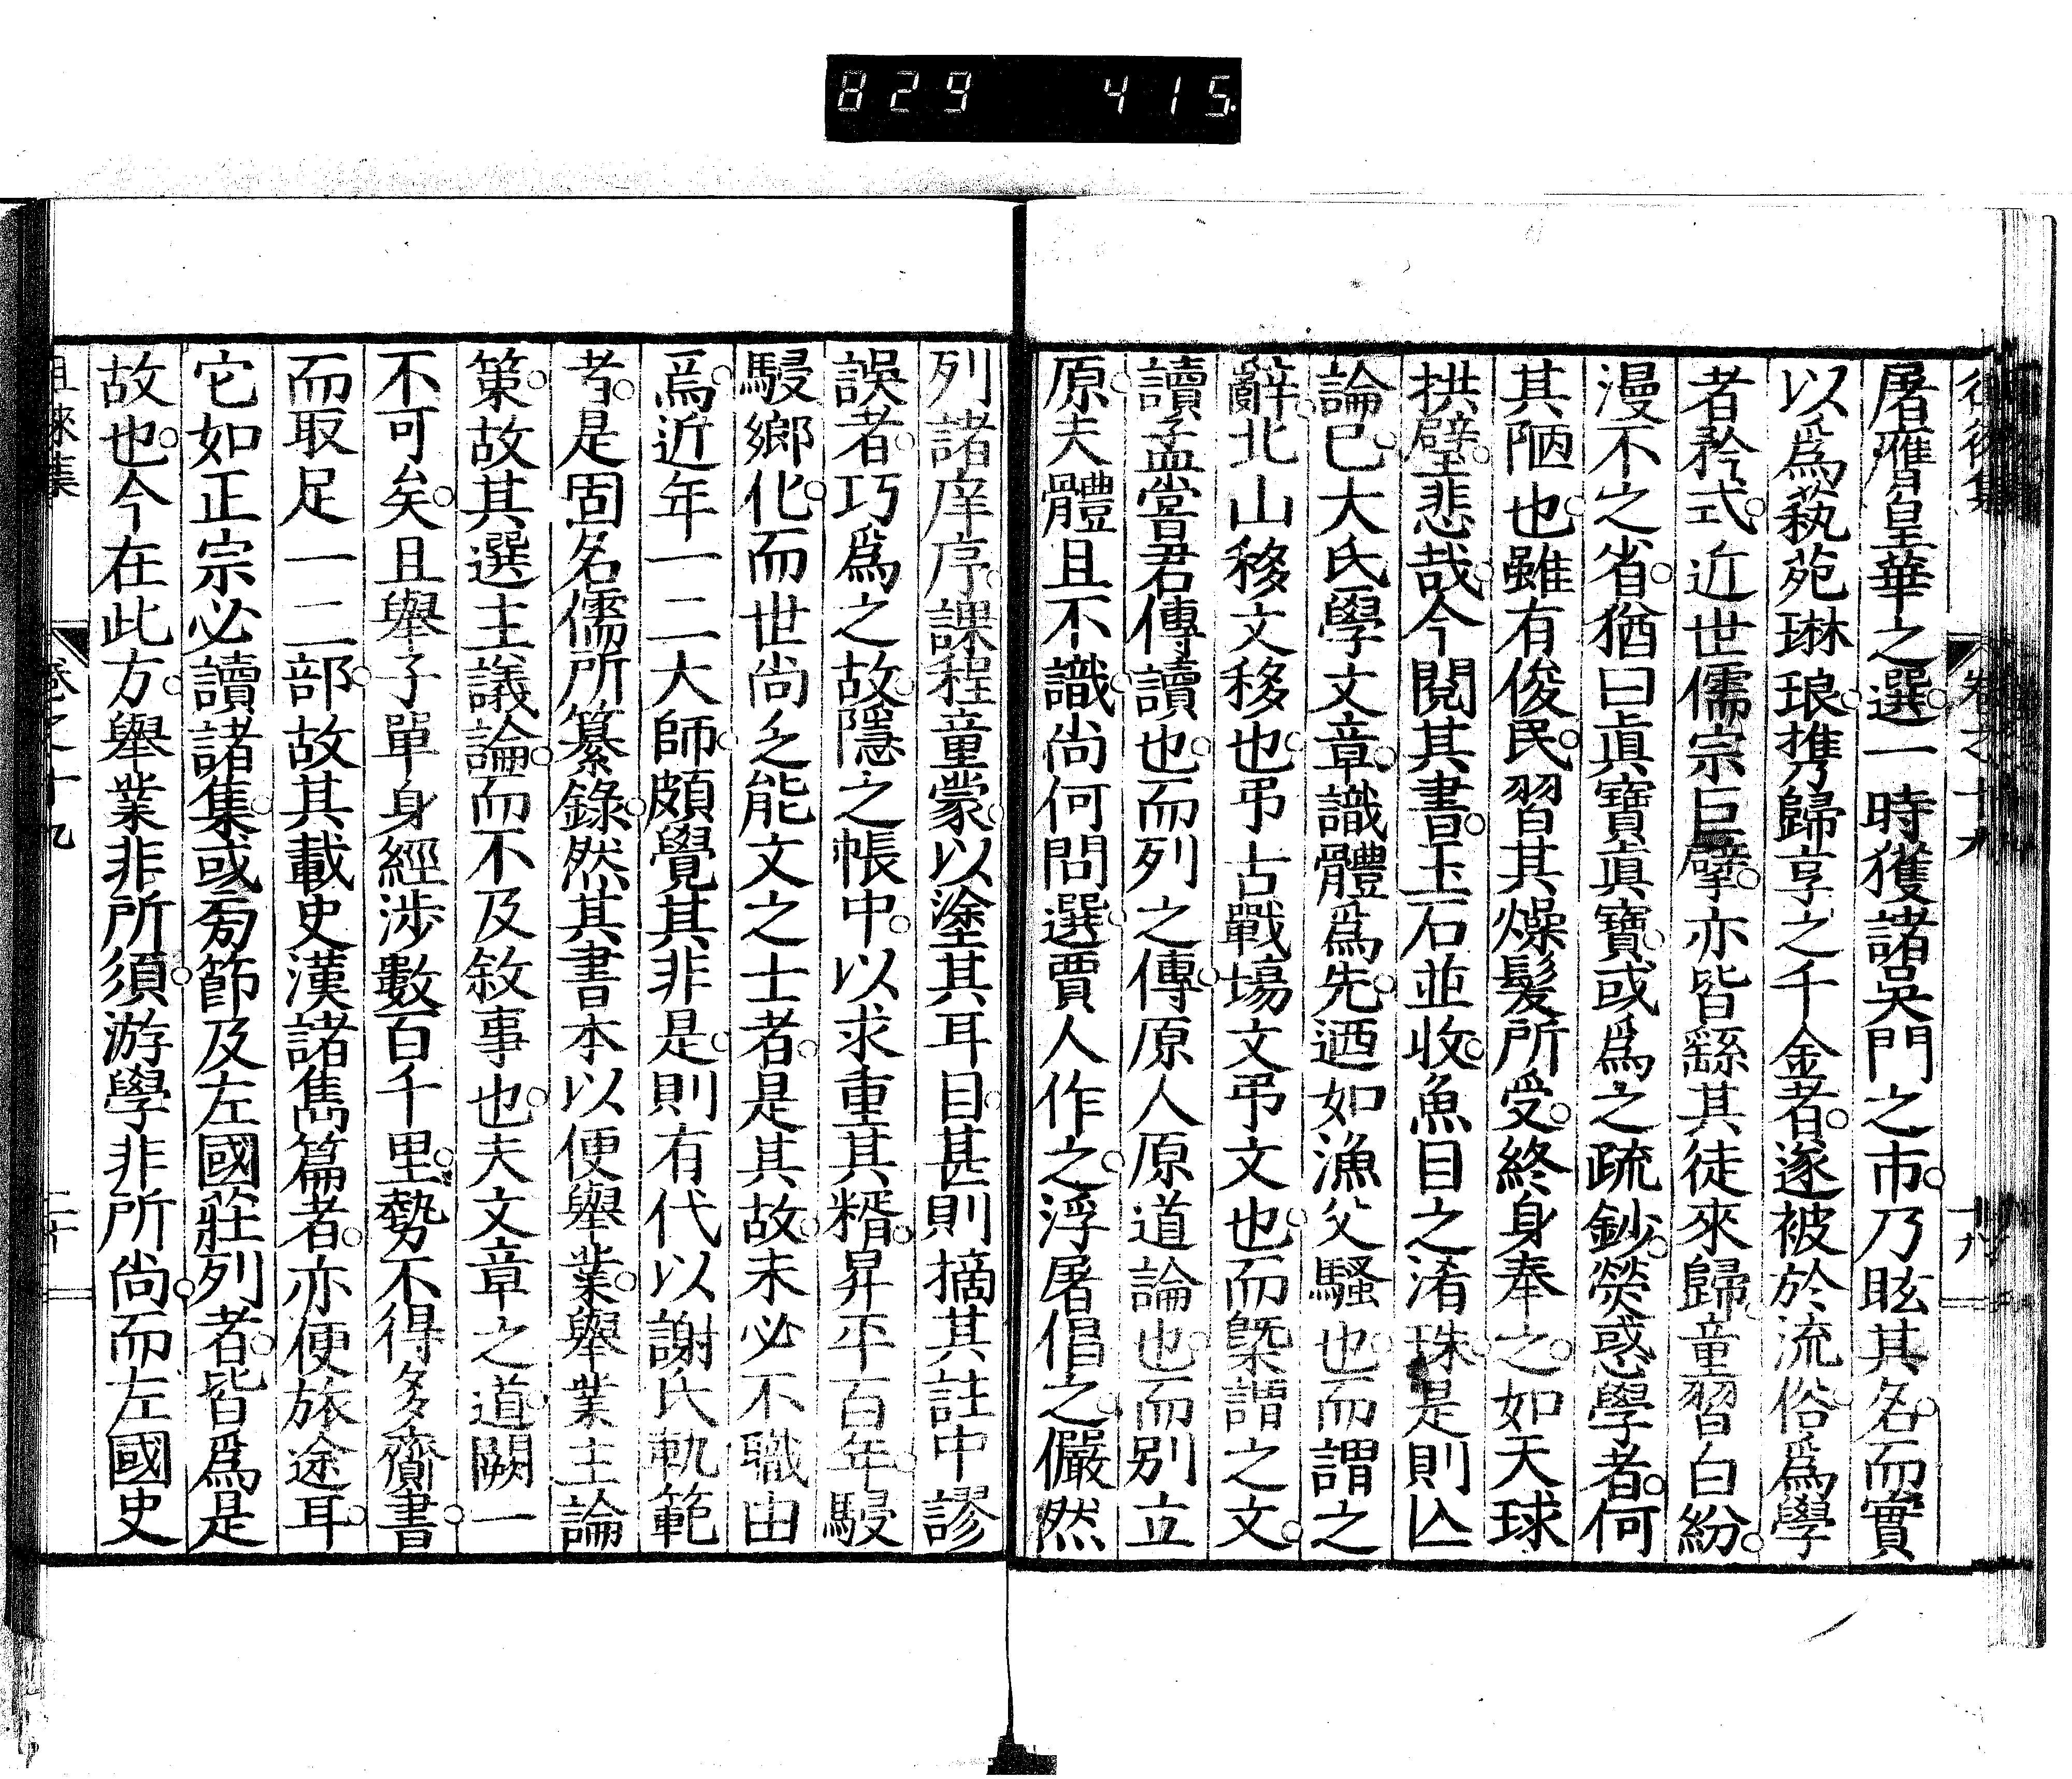 829 415.
卷之十九
十八
屠膺皇華之選。一時獲諸吳門之市。乃眩其名。而實
以爲蓺苑琳琅。携歸享之千金者。遂被於流俗。爲學
者矜式。近世儒宗巨擘。亦皆繇其徒來歸。童習白紛。
漫不之省。猶曰眞寶眞寶。或爲之疏鈔。熒惑學者。何
其陋也。雖有俊民。習其燥髮所受。終身奉之。如天球
拱璧。悲哉。今閱其書。玉石並收。魚目之淆珠。是則亾
論已。大氐學文章。識體爲先。迺如漁父騷也。而謂之
辭。北山移文移也。弔古戰場文弔文也。而槩謂之文。
讀孟嘗君傳讀也。而列之傳。原人原道論也。而別立
原。夫體且不識。尚何問選。賈人作之。浮屠倡之。儼然
列諸庠序。課程童蒙。以塗其耳目。甚則摘其註中謬
誤者。巧爲之故。隱之帳中。以求重其糈。昇平百年。駸
駸鄉化。而世尚乏能文之士者。是其故。未必不職由
焉。近年一二大師。頗覺其非是。則有代以謝氏軌範
者。是固名儒所纂錄。然其書本以便舉業。舉業主論
策。故其選主議論。而不及敘事也。夫文章之道。闕一
不可矣。且舉子單身經涉數百千里。勢不得多齎書。
而取足一二部。故其載史漢諸雋篇者。亦便旅途耳。
它如正宗必讀諸集。或芻節及左國莊列者。皆爲是
故也。今在此方。舉業非所須。游學非所尚。而左國史
徠集
卷之十九
二十